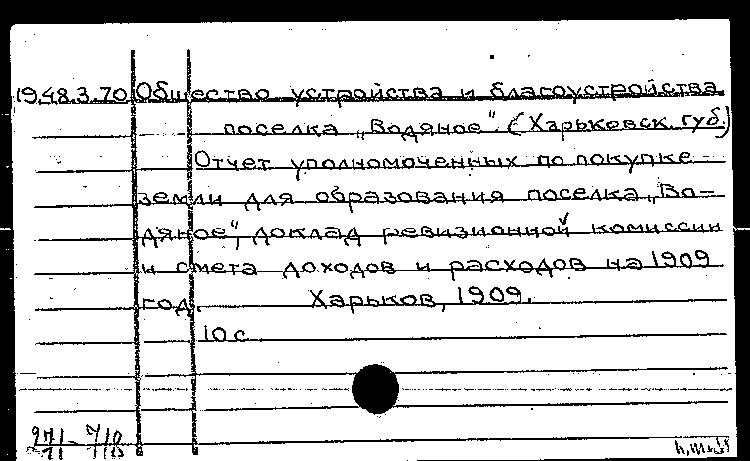 19.48.3.70 Общество устройства и благоустройства
поселка „Водяное". (Харьковск. губ.)
Отчет уполномоченных по покупке
земли для образования поселка „Во=
дяное", доклад ревизионной комиссии
и смета доходов и расходов на 1909
год. Харьков, 1909.
10 с.